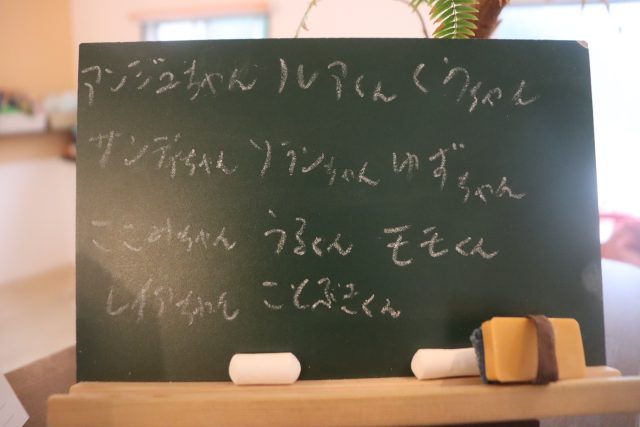 アンジュちゃん ルアくん くうちゃん
サンディちゃん ソランちゃん ゆずちゃん
ここめちゃん うるくん モモくん
レイアちゃん ことぶきくん